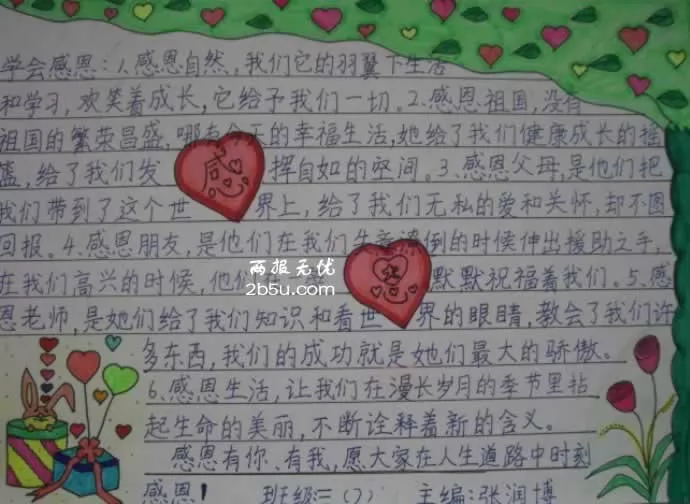 学会感恩：1.感恩自然，我们它的羽翼下生活
和学习，欢笑着成长，它给予我们一切。2.感恩祖国，没有
祖国的繁荣昌盛，哪有今天的幸福生活，她给了我们健康成长的摇
篮，给了我们发 感 挥自如的空间。3.感恩父母，是他们把
我们带到了这个世 界上，给了我们无私的爱和关怀，却不图
回报。4.感恩朋友，是他们在我们 倒的时候伸出援助之手，
在我们高兴的时候，他们 默默祝福着我们。5.感
两报无忧
2b5u.com
恩老师，是她们给了我们知识和看世 界的眼睛，教会了我们许
多东西，我们的成功就是她们最大的骄傲。
6.感恩生活，让我们在漫长岁月的季节里拈
起生命的美丽，不断诠释着新的含义。
感恩有你、有我，愿大家在人生道路中时刻
感恩！ 班级:二(2) 主编:张润博